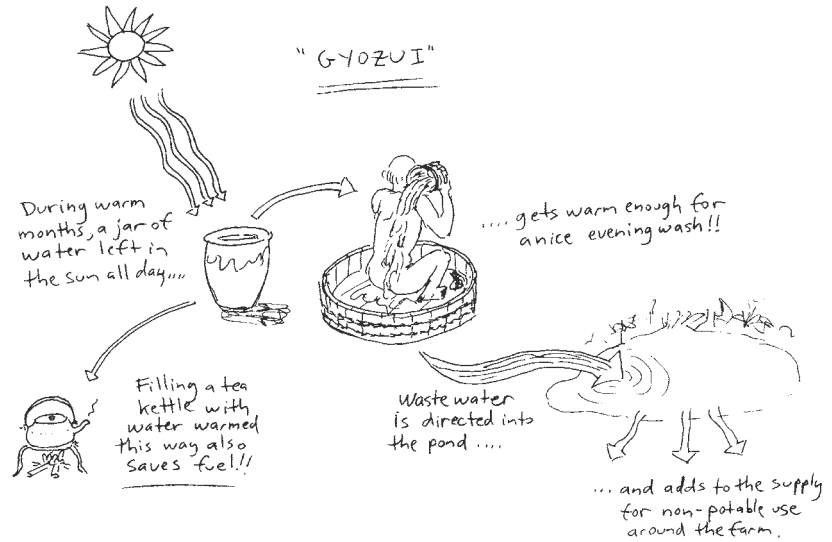 "GYOZUI"
During warm
months, a jar of
water left in
the sun all day....
....gets warm enough for
a nice evening wash!!
Filling a tea
kettle with
water warmed
this way also
saves fuel!!
Waste water
is directed into
the pond ....
... and adds to the supply
for non-potable use
around the farm.